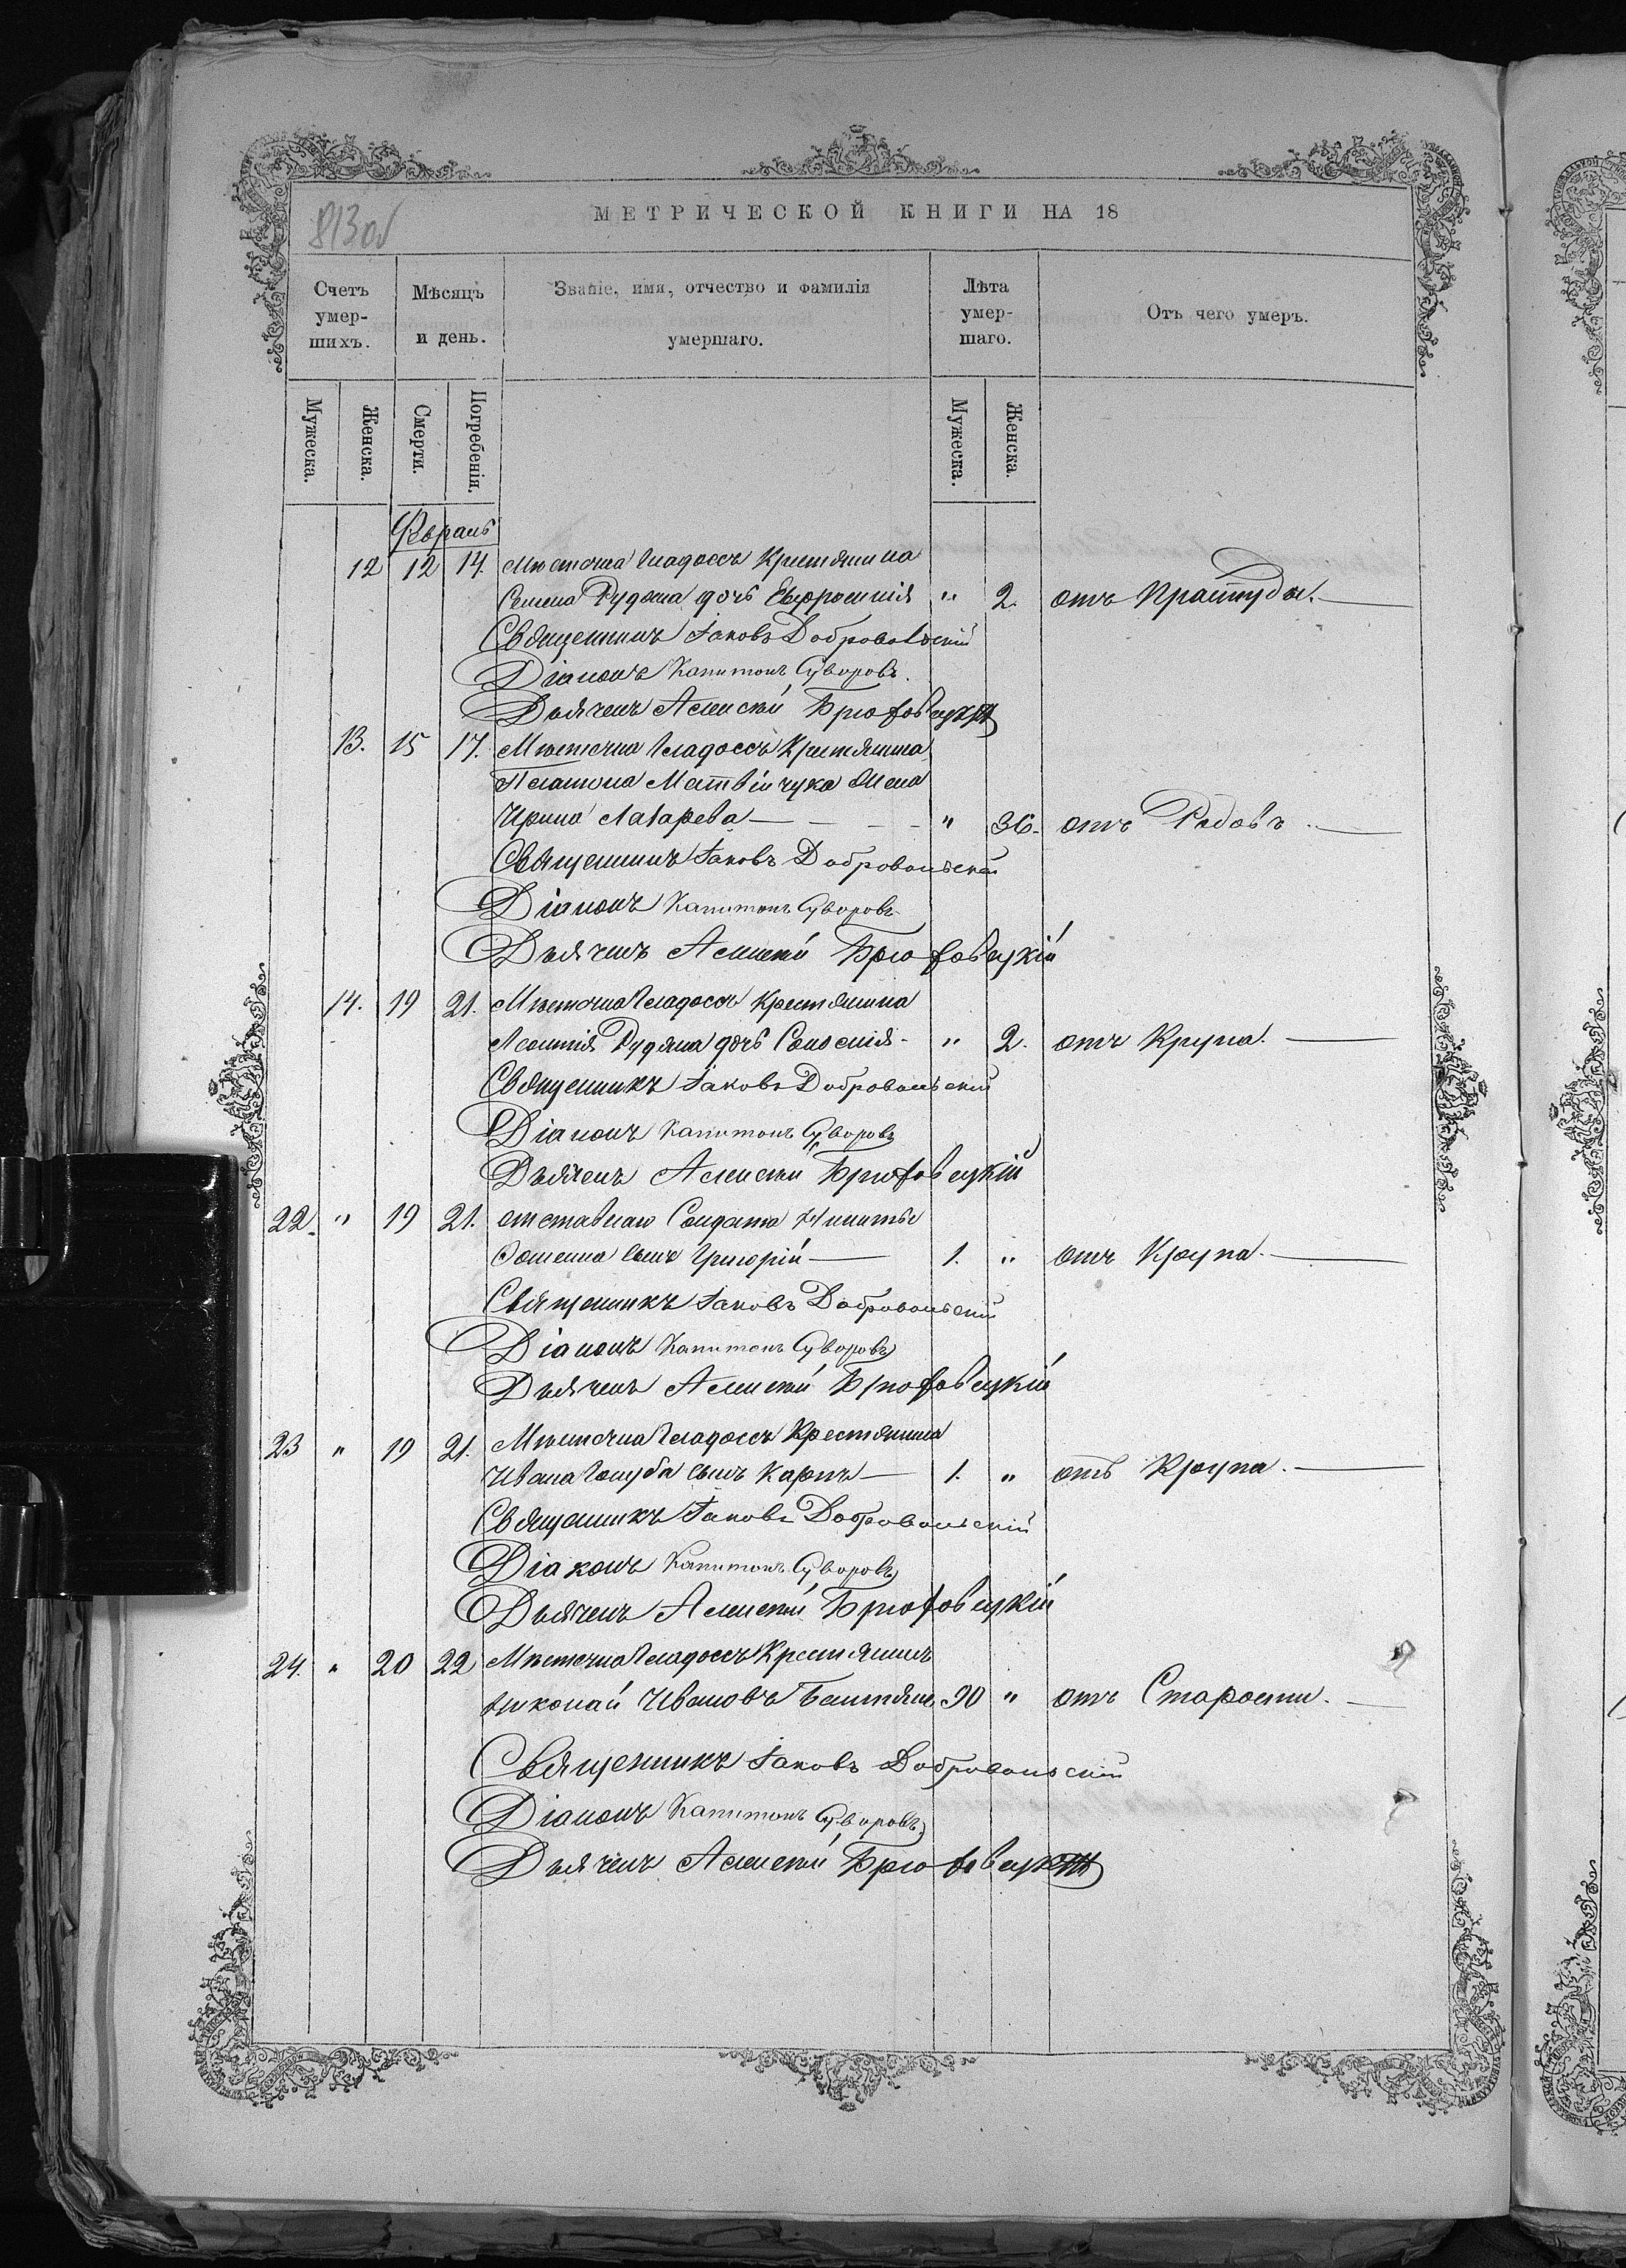 813об
МЕТРИЧЕСКОЙ КНИГИ НА 18
Счетъ умер-шихъ.
Мѣсяцъ и день.
Званіе, имя, отчество и фамилія умершаго.
Лѣта умер-шаго.
Отъ чего умеръ.
Мужеска.
Женска.
Смерти.
Погребенія.
Мужеска.
Женска.
Февраль
12 12 14. Мѣстечка Гладоссъ Крестянина
Семена Рудяка дочь Евфросинія " 2. отъ Простуды.
Священникъ Іаковъ Добровольскій
Діаконъ Капитонъ Суворовъ.
Дьячекъ Алексѣй
13. 15 17. Мѣстечка Гладоссъ Крестянина
Платона Матвійчука жена
Ирина Лазарева " 36. отъ Родовъ.
Священникъ Іаковъ Добровольскій
Діаконъ Капитонъ Суворовъ
Дьячекъ Алексѣй
14. 19 21. Мѣстечка Гладоссъ Крестянина
Рудяка дочь " 2. отъ Крупа.
Священникъ Іаковъ Добровольскій
Діаконъ Капитонъ Суворовъ
Дьячекъ Алексѣй
22. " 19 21. отставнаго Солдата Никиты
сынъ Григорій 1. " отъ Крупа.
Священникъ Іаковъ Добровольскій
Діаконъ Капитонъ Суворовъ
Дьячекъ Алексѣй
23 " 19 21. Мѣстечка Гладоссъ Крестянина
Ивана Голуба сынъ Карпъ 1. " отъ Крупа.
Священникъ Іаковъ Добровольскій
Діаконъ Капитонъ Суворовъ
Дьячекъ Алексѣй
24. " 20 22 Мѣстечка Гладоссъ Крестянинъ
Николай Ивановъ 90 " отъ Старости.
Священникъ Іаковъ Добровольскій
Діаконъ Капитонъ Суворовъ
Дьячекъ Алексѣй